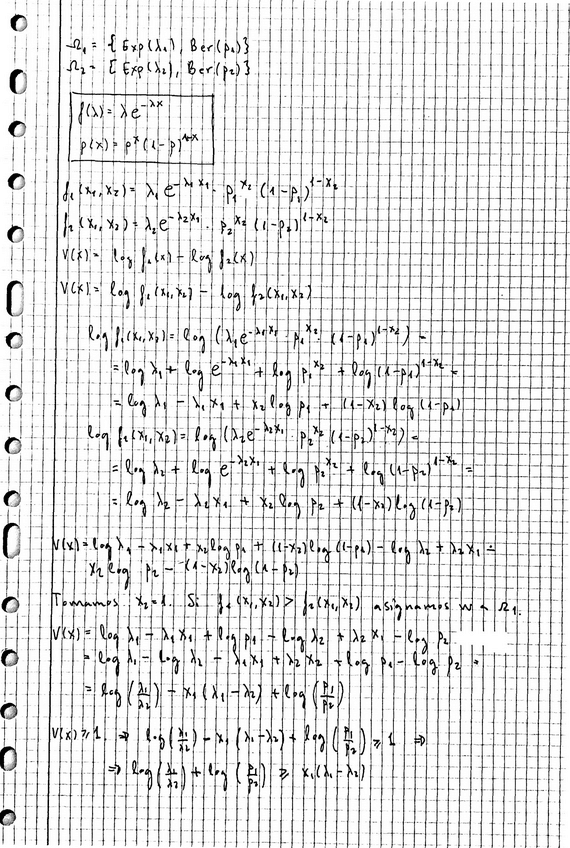 Ω₁ = { Exp(λ₁), Ber(p₁)}
Ω₂ = { Exp(λ₂), Ber(p₂)}
f(λ) = λe^{-λx}
p(x) = p^x (1-p)^{1-x}
f₁(x₁,x₂) = λ₁ e^{-λ₁x₁} · p₁^{x₂} (1-p₁)^{1-x₂}
f₂(x₁,x₂) = λ₂ e^{-λ₂x₁} · p₂^{x₂} (1-p₂)^{1-x₂}
V(x) = log f₁(x) - log f₂(x)
V(x) = log f₁(x₁,x₂) - log f₂(x₁,x₂)
log f₁(x₁,x₂) = log (λ₁e^{-λ₁x₁} · p₁^{x₂} · (1-p₁)^{1-x₂}) =
= log λ₁ + log e^{-λ₁x₁} + log p₁^{x₂} + log (1-p₁)^{1-x₂} =
= log λ₁ - λ₁x₁ + x₂ log p₁ + (1-x₂) log (1-p₁)
log f₂(x₁,x₂) = log (λ₂e^{-λ₂x₁} · p₂^{x₂} (1-p₂)^{1-x₂}) =
= log λ₂ + log e^{-λ₂x₁} + log p₂^{x₂} + log (1-p₂)^{1-x₂} =
= log λ₂ - λ₂x₁ + x₂ log p₂ + (1-x₂) log (1-p₂)
V(x) = log λ₁ - λ₁x₁ + x₂ log p₁ + (1-x₂) log (1-p₁) - log λ₂ + λ₂x₁ -
x₂ log p₂ - (1-x₂) log (1-p₂)
Tomamos x₂=1. Si f₁(x₁,x₂) > f₂(x₁,x₂) asignamos w a Ω₁.
V(x) = log λ₁ - λ₁x₁ + log p₁ - log λ₂ + λ₂x₁ - log p₂
= log λ₁ - log λ₂ - λ₁x₁ + λ₂x₂ + log p₁ - log p₂ =
= log (λ₁/λ₂) - x₁(λ₁-λ₂) + log (p₁/p₂)
V(x) ≥ 1 ⇒ log (λ₁/λ₂) - x₁(λ₁-λ₂) + log (p₁/p₂) ≥ 1 ⇒
⇒ log (λ₁/λ₂) + log (p₁/p₂) ≥ x₁(λ₁-λ₂)